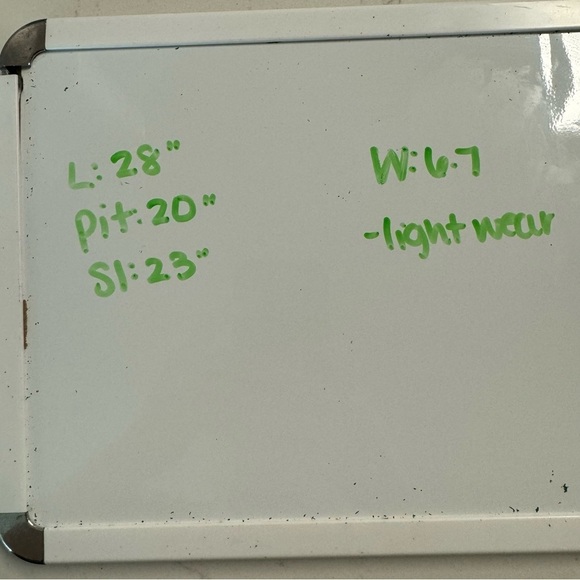 L: 28"
Pit: 20"
Sl: 23"
W: 6.7
-light wear